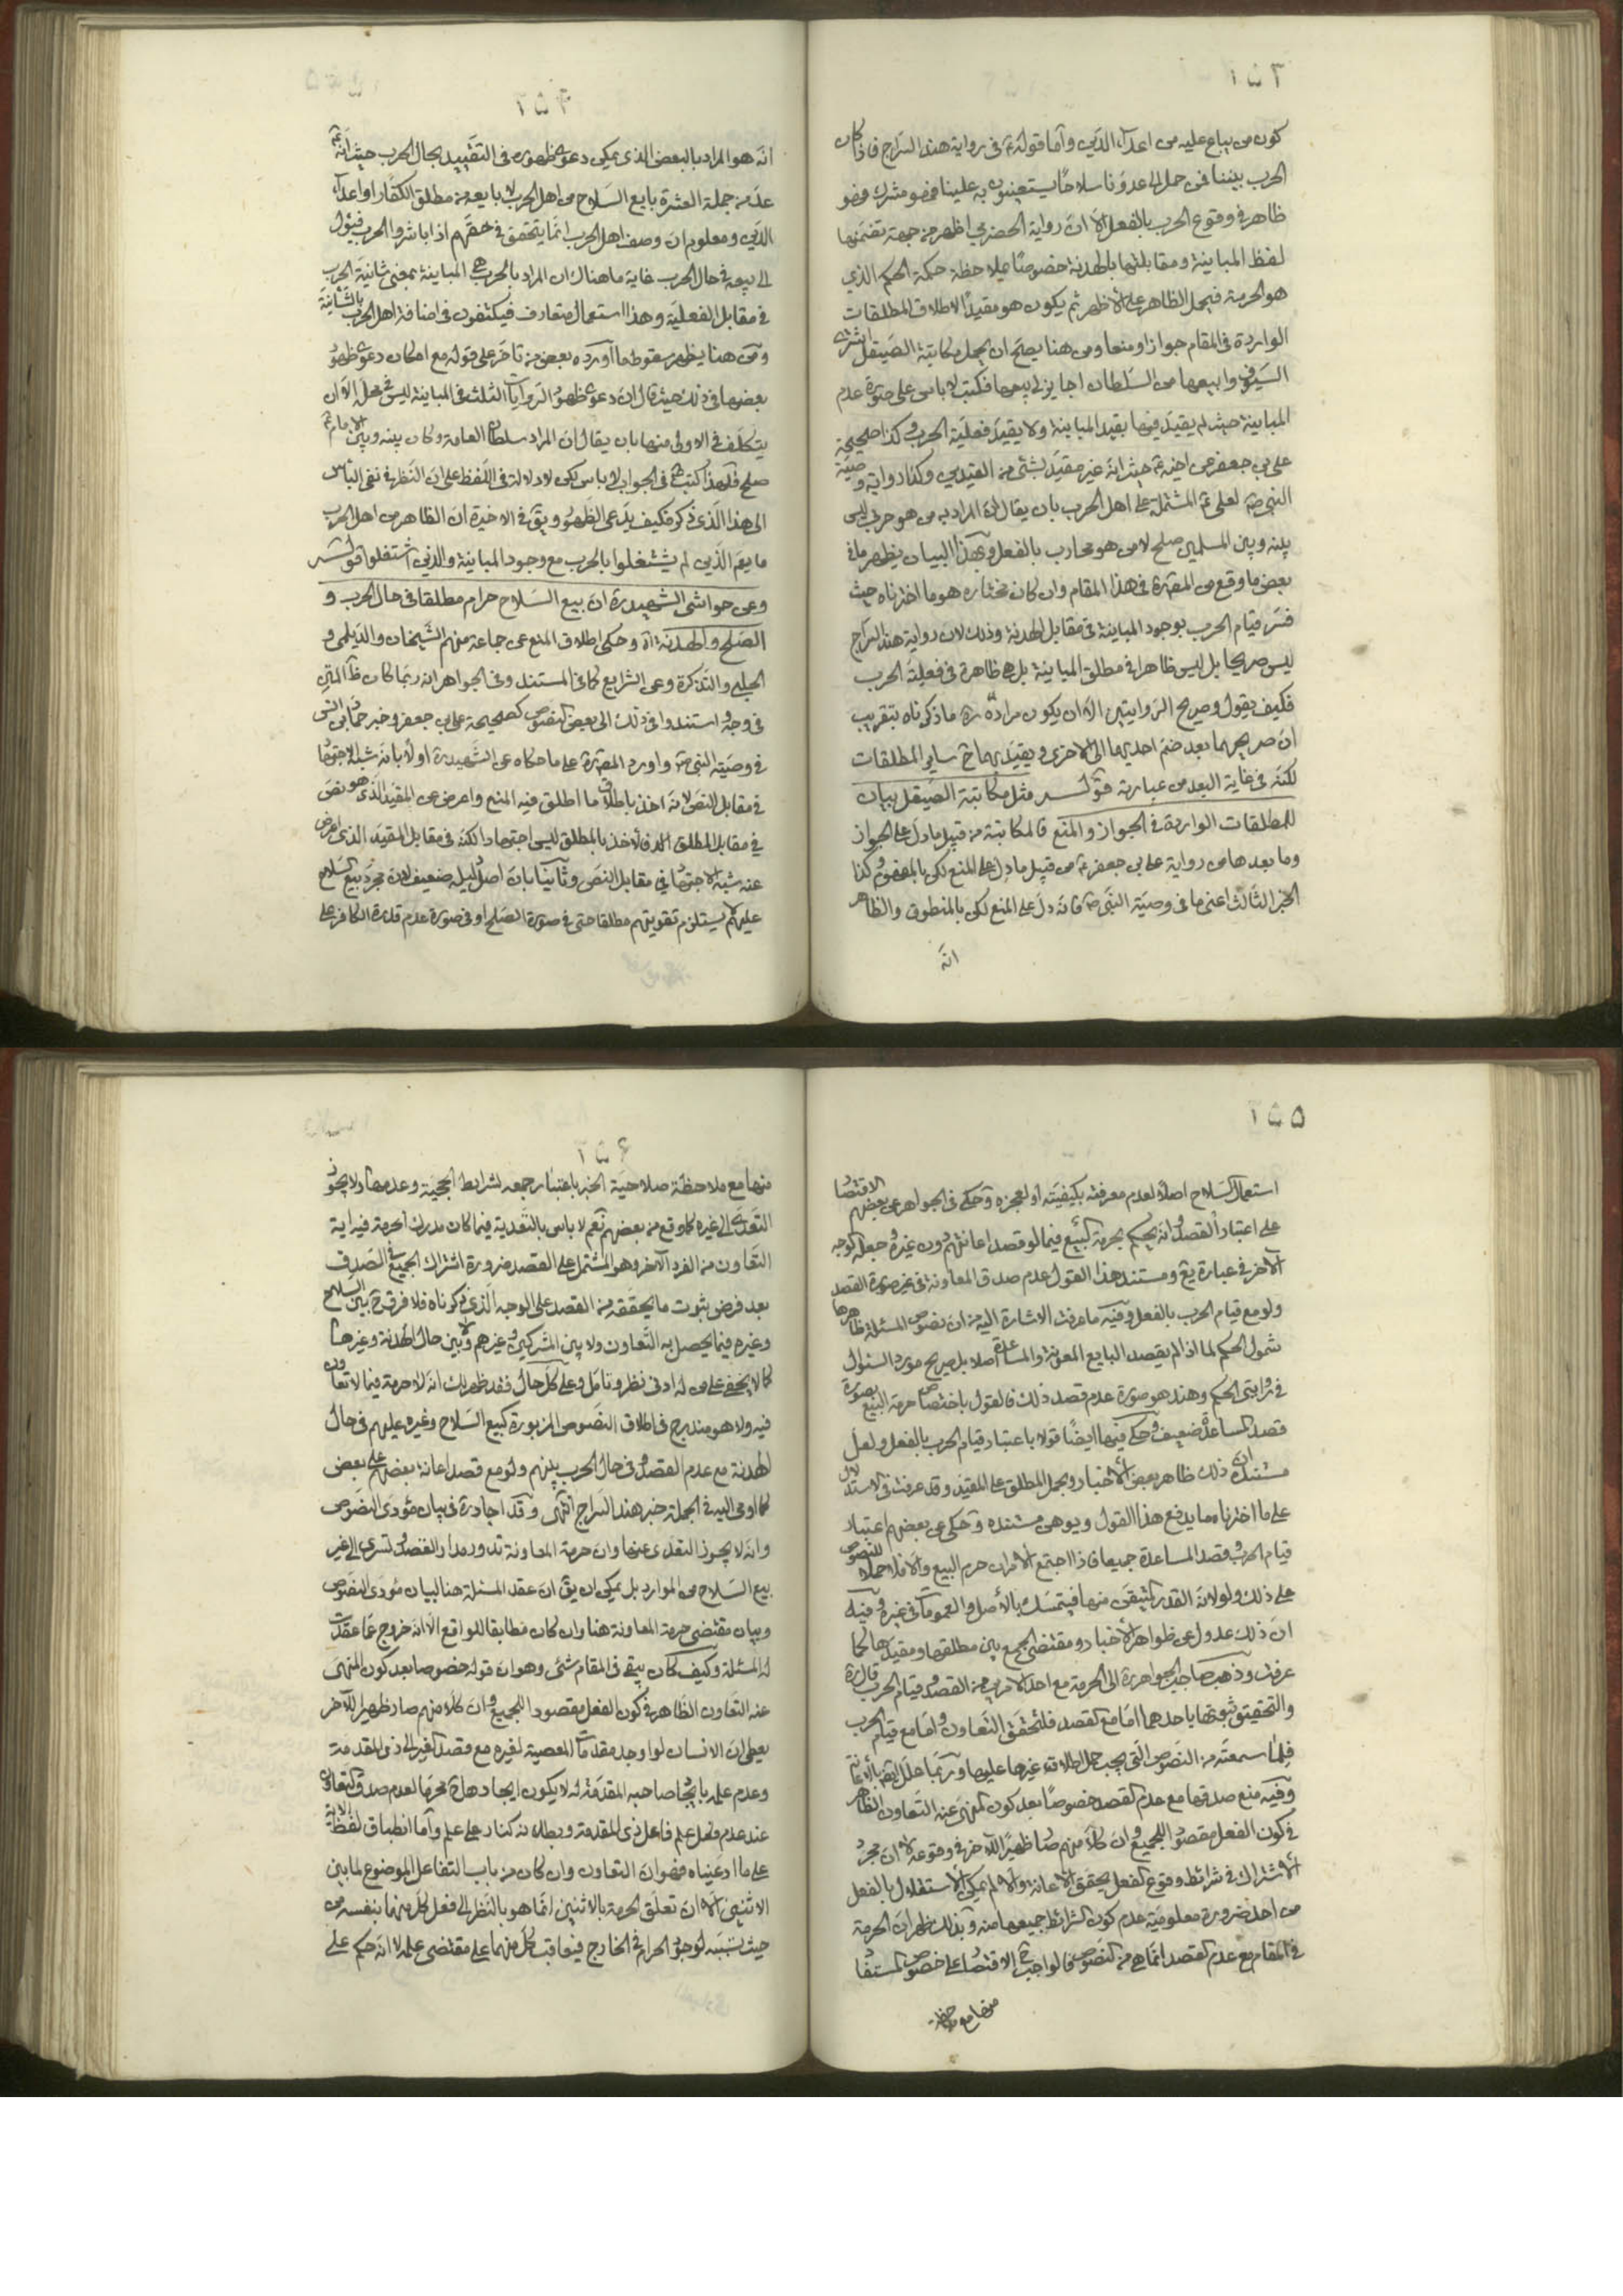 ۱۵۳
كون من يباع عليه من اعداء الدّين وامّا قوله ع في رواية هند السّراج فاذا كان
الحرب بيننا فمن حمل الى عدوّنا سلاحا يستعينون به علينا فهو مشرك فهو
ظاهر في وقوع الحرب بالفعل الّا انّ رواية الحضرمي اظهر من جهة تضمّنها
لفظ المباينة ومقابلتها بالهدنة خصوصًا بملاحظة حكمة الحكم الذي
هو الحرمة فيحمل الظاهر على الأظهر ثم يكون هو مقيدًا لاطلاق المطلقات
الواردة في المقام جوازا ومنعا ومن هنا يصحّ ان يحمل مكاتبة الصّيقل اشترى
السّيوف وابيعها من السّلطان اجايز لي بيعها فكتب لا باس على صورة عدم
المباينة حيث لم يقيد فيها بقيد المباينة ولا يقيد فعليّة الحرب وكذا صحيحة
علي بن جعفر عن اخيه ع حيث انّه غير مقيّد بشئ من القيدين وكذا رواية وصيّة
النبي ص لعلي ع المشتملة على اهل الحرب بان يقال انّ المراد به من هو حربي ليس
بينه وبين المسلمين صلح لا من هو محارب بالفعل وبهذا البيان يظهر ما في
بعض ما وقع من المص ره في هذا المقام وان كان مختاره هو ما اخترناه حيث
فسّر قيام الحرب بوجود المباينة في مقابل الهدنة وذلك لان رواية هند السراج
ليس صريحا بل ليس ظاهرا في مطلق المباينة بل هي ظاهرة في فعليّة الحرب
فكيف يقول وصريح الروايتين الّا ان يكون مراده ره ما ذكرناه بتقريب
انّ صريحهما بعد ضمّ احديهما الى الاخرى ويقيد بهما ح ساير المطلقات
لكنّه في غاية البعد من عبارته قولــه مثل مكاتبة الصّيقل بيان
للمطلقات الواردة في الجواز والمنع فالمكاتبة من قبيل ما دلّ على الجواز
وما بعدها من رواية علي بن جعفر ع من قبيل ما دلّ على المنع لكن بالمفهوم وكذا
الخبر الثّالث اعني ما في وصيّة النّبي ص فانّه دلّ على المنع لكن بالمنطوق والظاهر
انّه
۱۵۴
انّه هو المراد بالبعض الذي يمكن دعوى ظهوره في التقييد بحال الحرب حيث انّه ع
عدّ من جملة العشرة بايع السّلاح من اهل الحرب لا بايعه من مطلق الكفّار او اعداء
الدّين ومعلوم ان وصف اهل الحرب انّما يتحقق في حقّهم اذا باشروا الحرب فيؤل
الى بيعه في حال الحرب غاية ما هناك ان المراد بالحرب هي المباينة بمعنى شانيّة الحرب
في مقابل الفعليّة وهذا استعمال متعارف فيكتفون في اضافة اهل الحرب بالشّانيّة
ومن هنا يظهر سقوط ما اورده بعض من تاخّر على قوله مع امكان دعوى ظهور
بعضها في ذلك حيث قال انّ دعوى ظهور الرّوايات الثلث في المباينة ليس في محله الّا ان
يتكلّف في الاولى منها بان يقال انّ المراد سلطان العامة وكان بينه وبين الامام ع
صلح فلهذا كتب ع في الجواب لا باس لكن لا دلالة في اللّفظ على انّ النّظر في نفى البأس
الى هذا الّذي ذكر فكيف يدّعى الظّهور ويق في الاخيرة انّ الظاهر من اهل الحرب
ما يعمّ الّذين لم يشتغلوا بالحرب مع وجود المباينة والذين اشتغلوا قولــه
وعن حواشي الشّهيد ره انّ بيع السّلاح حرام مطلقا في حال الحرب و
الصّلح والهدنة اه وحكى اطلاق المنع عن جماعة منهم الشّيخان والدّيلمي و
الحلبي والتّذكرة وعن الشرايع كما في المستند وفي الجواهر انه ربّما كان ظ المتن
في وجه واستندوا في ذلك الى بعض النّصوص كصحيحة علي بن جعفر وخبر حمّاد بن انس
في وصيّة النبي ص واورد المص ره على ما حكاه عن الشّهيد ره اولا بانه شبه الاجتهاد
في مقابل النصّ لانّه اخذ باطلاق ما اطلق فيه المنع واعرض عن المقيد الذي هو نصّ
في مقابل المطلق فالاخذ بالمطلق ليس اجتهادا لكنّه في مقابل المقيّد الذي اعرض
عنه شبه الاجتهاد في مقابل النصّ وثانيا بانّ اصل دليله ضعيف لان مجرّد بيع السّلاح
عليهم لا يستلزم تقويتهم مطلقا حتى في صورة الصّلح او في صورة عدم قدرة الكافر على
۱۵۵
استعمال السّلاح اصلا لعدم معرفته بكيفيّته او لعجزه وحكى في الجواهر عن بعضهم الاقتصار
على اعتبار القصد وانه يحكم بحرمة البيع فيما لو قصد اعانتهم دون غيره وجعله كوجه
الآخر في عبارة يع ومستند هذا القول عدم صدق المعاونة في غير صورة القصد
ولو مع قيام الحرب بالفعل وفيه ما عرفت الاشارة اليه من ان نصوص المسئلة ظاهرها
شمول الحكم لما اذا لم يقصد البايع المعونة والمساعدة اصلا بل صريح مورد السّؤال
في روايتي الحكم وهند هو صورة عدم قصد ذلك فالقول باختصاص حرمة البيع بصورة
قصد المساعدة ضعيف وحكى فيها ايضًا قولا باعتبار قيام الحرب بالفعل ولعل
مستنده ان ذلك ظاهر بعض الأخبار ويحمل المطلق على المقيّد وقد عرفت في الاستدلال
على ما اخترناه ما يدفع هذا القول ويوهن مستنده وحكى عن بعضهم اعتبار
قيام الحرب وقصد المساعدة جميعا فاذا اجتمع الأمران حرم البيع والا فلا حملا للنصوص
على ذلك ولو لانه القدر المتيقن منها فيتمسّك بالأصل والعمومات في غيره وفيه
انّ ذلك عدول عن ظواهر الأخبار ومقتضى الجمع بين مطلقها ومقيدها كما
عرفت وذهب صاحب الجواهر ره الى الحرمة مع احد الامرين من القصد وقيام الحرب قال ره
والتحقيق ثبوتها باحدهما امّا مع القصد فلتحقّق التّعاون وامّا مع قيام الحرب
فلما سمعته من النّصوص الّتي يجب حمل اطلاق غيرها عليها وربّما علّل ايضا بالاعانة
وفيه منع صدقها مع عدم القصد خصوصًا بعد كون المنهى عنه التّعاون الظاهر
في كون الفعل مقصودا للجميع وانّ كلًّا منهم صار ظهيرًا للآخر في وقوعه لا ان مجرّد
الأشتراك في شرائط وقوع الفعل يحقق الاعانة والّا لم يمكن الاستقلال بالفعل
من احد ضرورة معلوميّة عدم كون الشّرائط جميعها منه وبذلك ظهر انّ الحرمة
في المقام مع عدم القصد انّما هي من النّصوص فالواجب ح الاقتصار على خصوص المستفاد
منها مع ملاحظة
۱۵۶
منها مع ملاحظة صلاحيّة الخبر باعتبار جمعه لشرايط الحجيّة وعدمها ولا يجوز
التّعدّي الى غيره كما وقع من بعضهم نعم لا باس بالتّعدية فيما كان مدرك الحرمة فيه اية
التّعاون من الفرد الآخر وهو المشتمل على القصد ضرورة اشتراك الجميع في الصّدق
بعد فرض ثبوت ما يحققه من القصد على الوجه الّذي ذكرناه فلا فرق ح بين السّلاح
وغيره فيما يحصل به التّعاون ولا بين المشركين وغيرهم ولا بين حال الهدنة وغيرها
كما لا يخفى على من له ادنى نظر وتامّل وعلى كلّ حال فقد ظهر لك انّه لا حرمة فيما لا تعاون
فيه ولا هو مندرج في اطلاق النصوص المزبورة كبيع السّلاح وغيره عليهم في حال
الهدنة مع عدم القصد وفي حال الحرب بينهم ولو مع قصد اعانة بعضهم على بعض
كما اومى اليه في الجملة خبر هند السّراج انتهى وقد اجاد ره في بيان مؤدّى النّصوص
وانّه لا يجوز التعدّي عنها وان حرمة المعاونة تدور مدار القصد وتسرى الى غير
بيع السّلاح من الموارد بل يمكن ان يق انّ عقد المسئلة هنا لبيان مؤدّى النّصوص
وبيان مقتضى حرمة المعاونة هنا وان كان مطابقا للواقع الّا انه خروج عمّا عقدت
له المسئلة وكيف كان يبقى في المقام شئ وهو ان قوله خصوصا بعد كون المنهى
عنه التّعاون الظّاهر في كون الفعل مقصودا للجميع وان كلّا منهم صار ظهيرا للآخر
يعطى انّ الانسان لو اوجد مقدمات المعصية لغيره مع قصد الغير الى ذي المقدمة
وعدم علمه بايجاد صاحبه المقدّمة له لا يكون ايجادها ح محرّما لعدم صدق التّعاون
عند عدم علم فاعل ذي المقدمة وبطلانه كنار على علم وأمّا انطباق لفظ الاية
على ما ادعيناه فهو انّ التعاون وان كان من باب التفاعل الموضوع لما بين
الاثنين الّا انّ تعلّق الحرمة بالاثنين انّما هو بالنّظر الى فعل كلّ منهما بنفسه من
حيث تسبّبه لوجود الحرام في الخارج فيعاقب كلّ منهما على مقتضى عمله لا انّه حكم على